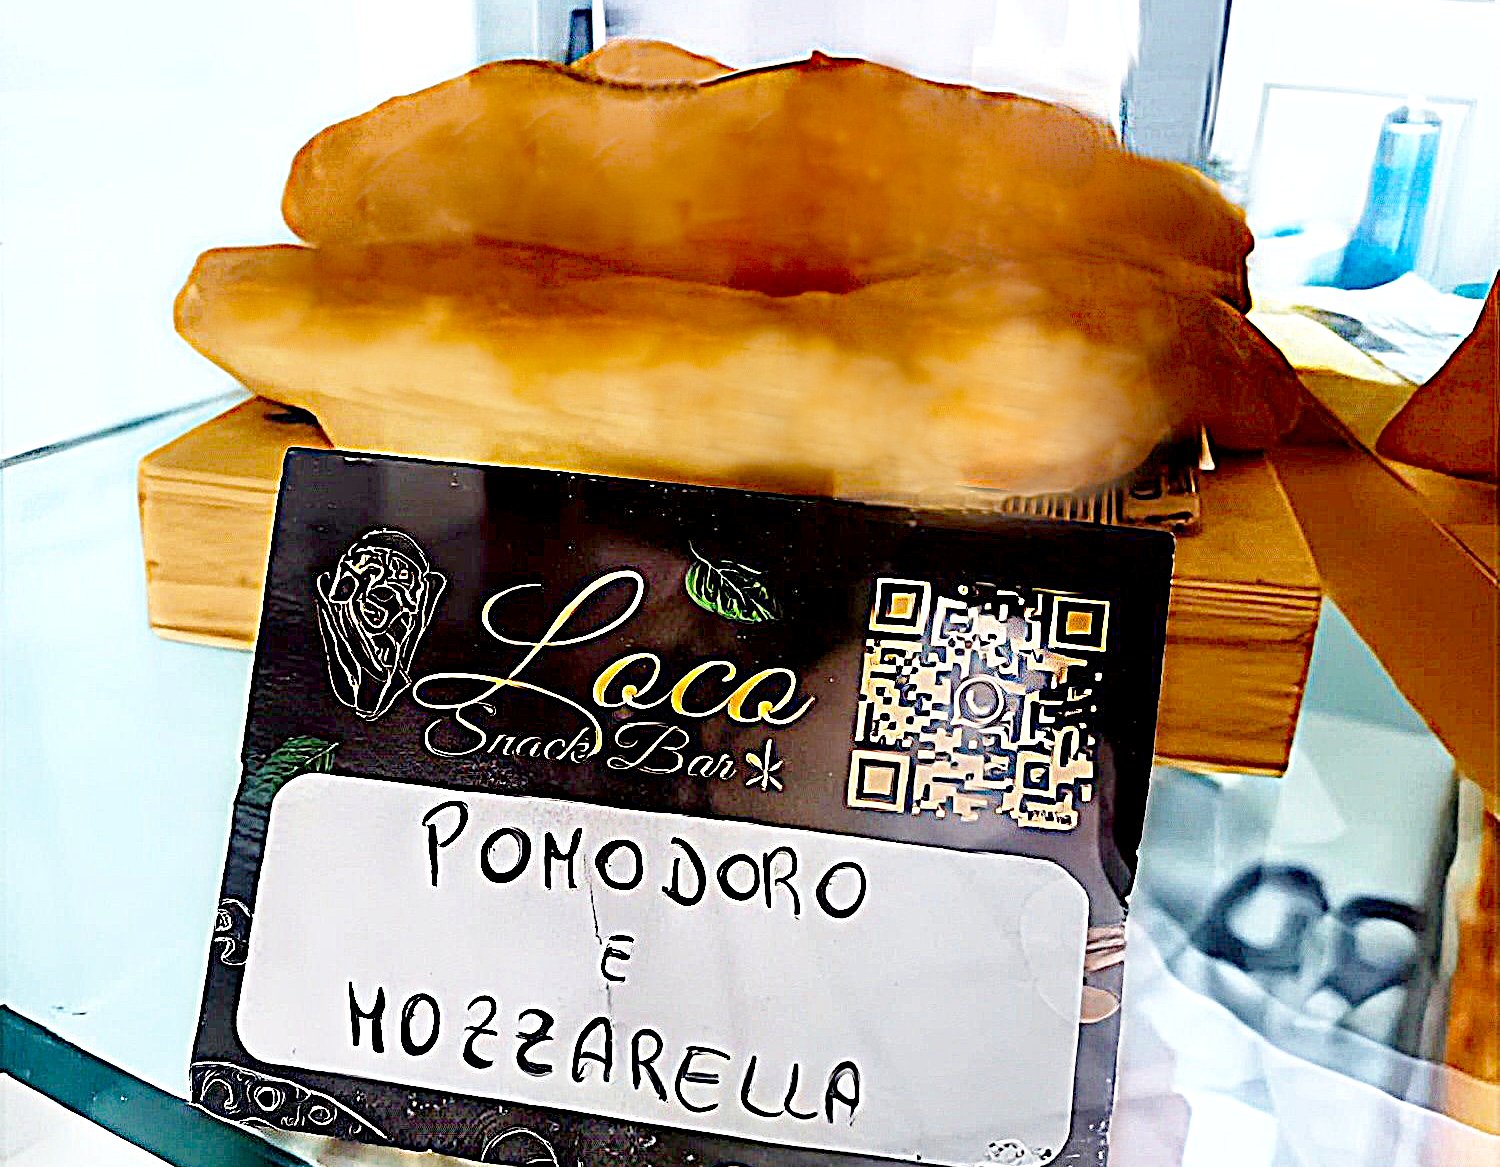 Loco
Snack Bar
POMODORO
E
MOZZARELLA